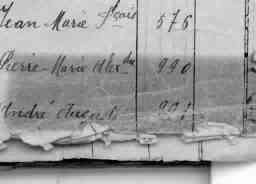 Jean Marie Fçois 576
Pierre-Marie Alexdre 990
André August